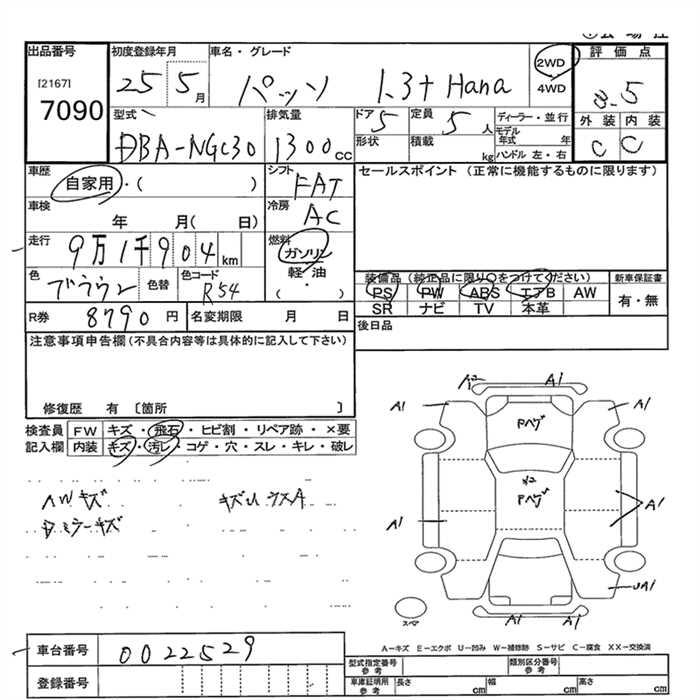 出品番号 初度登録年月 車名・グレード 2WD 評価点
[2167] 25 5月 パッソ 1.3+ Hana 4WD 3.5
7090 型式 排気量 ドア 定員 ディーラー・並行 外装 内装
DBA-NGC30 1300cc 5 5人 モデル年式 年 C C
形状 積載 kg ハンドル 左・右
車歴 シフト セールスポイント(正常に機能するものに限ります)
自家用・( ) FAT
車検 冷房
年 月( 日) AC
走行 燃料
9万1千904km ガソリン
色 色替 色コード 軽・油 装備品(純正品に限り○をつけてください) 新車保証書
ブラウン R54 ・( ) PS PW ABS エアB AW 有・無
R券 8790円 名変期限 月 日 SR ナビ TV 本革
後日品
注意事項申告欄(不具合内容等は具体的に記入して下さい)
修復歴 有〔箇所 〕
検査員 FW キズ・飛石・ヒビ割・リペア跡・×要
記入欄 内装 キズ・汚レ・コゲ・穴・スレ・キレ・破レ
A2 A1
A1 A1
Pヘゲ
Pヘゲ
A1 A1
UA1
A1 A1
スペア
HWキズ キズUウスA
ミラーキズ
A-キズ E-エクボ U-凹み W-補修跡 S-サビ C-腐食 XX-交換済
車台番号 0022529
登録番号
型式指定番号 参考 類別区分番号 参考
車庫証明用 参考 長さ cm 幅 cm 高さ cm